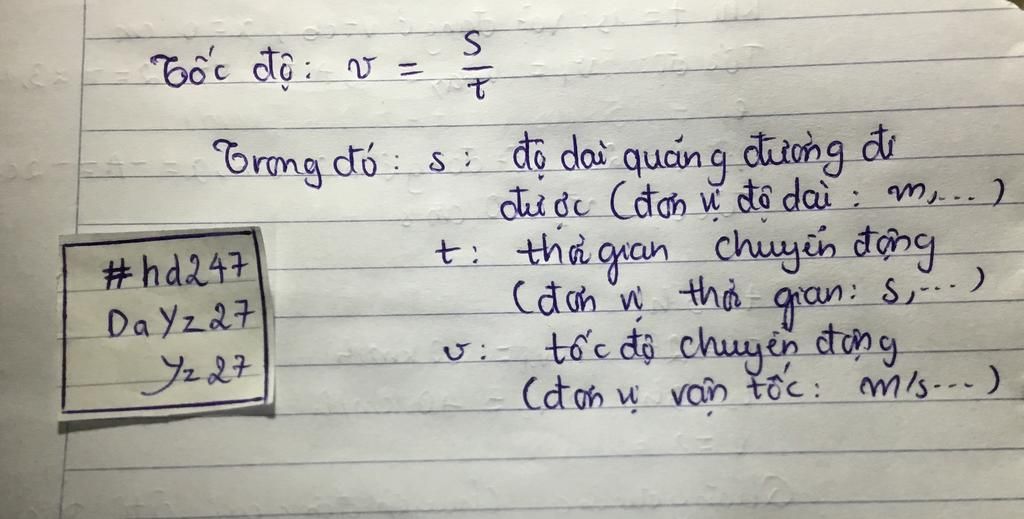 Tốc độ: v = s/t
Trong đó: s: độ dài quãng đường đi
được (đơn vị độ dài: m,...)
t: thời gian chuyển động
(đơn vị thời gian: s,...)
v: tốc độ chuyển động
(đơn vị vận tốc: m/s...)
#hd247
DaYz27
Yz27